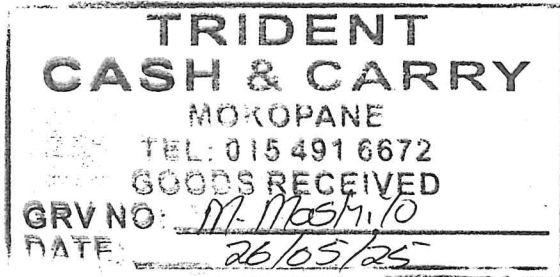 TRIDENT
CASH & CARRY
MOKOPANE
TEL: 015 491 6672
GOODS RECEIVED
GRV NO: M. Mashilo
DATE: 26/05/25